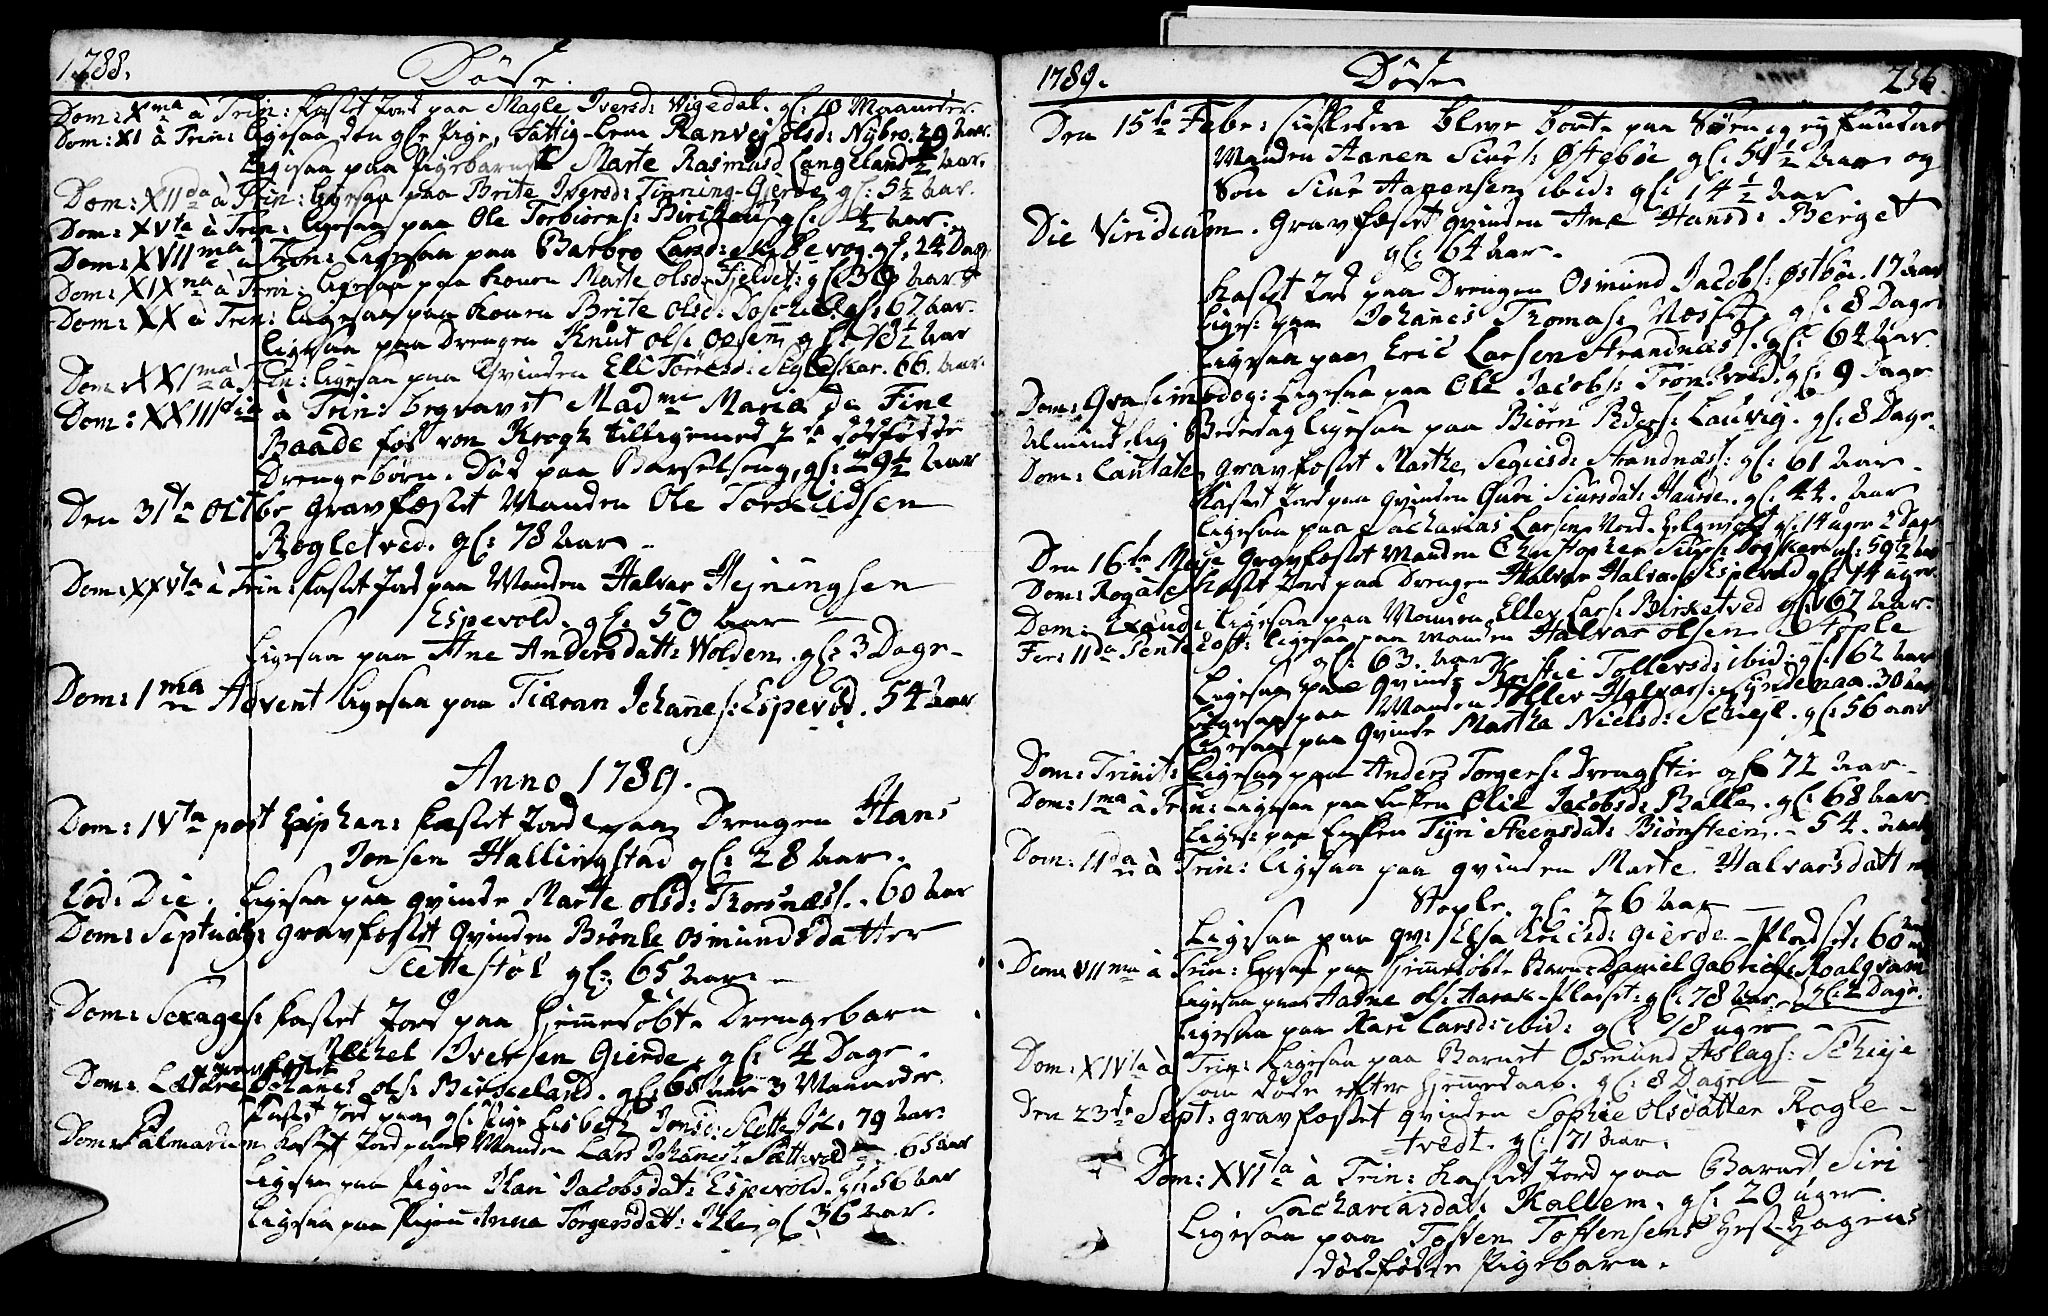 1788.
Døde.
Dom: Xma à Trin: kastet Jord paa Magle Iversd: Vigedal. gl: 10 Maaneder.
Dom: XI à Trin: ligesaa den gle Pige, Fattig-Lem Ranvej olsd: Nybro. 29 Aar.
Ligesaa paa Pigebarnet Marte Rasmusd Langeland ½ Aar.
Dom: XIIda à Trin: ligesaa paa Brite Iversd: Tinning-Gierde gl: 5½ Aar.
Dom: XVta à Trin: ligesaa paa Ole Torbiørns: gl: ½ Aar.
Dom: XVIIma à Trin: Ligesaa paa Barbro Larsd: gl: 24 Dag
Dom: XIXna à Trin: ligesaa paa konen Marte olsd: Fjeldet: gl 36 Aar
Dom: XX à Trin: ligesaa paa konen Brite olsd: gl: 67 Aar.
ligesaa paa Drengen Knut ols: gl: 18½ Aar
Dom: XXIma à Trin: ligesaa paa Qvinden Eli Tørresd: 66. Aar.
Dom: XXIII à Trin: begravet Madme Maria de Fine
Baade fød von Krogh tilligemed 2de dødfødde
Drengebørn. Død paa Barselseng, gl: 29½ Aar
Den 31te Octbr gravfæstet Manden Ole
Rogletved. gl: 78 Aar
Dom: XXVta à Trin: kastet Jord paa Manden Halvar Hejningsen
Espevold. gl: 50 Aar
Ligesaa paa Ane Andersdatt: Wolden. gl: 3 Dage
Dom: 1ma Advent ligesaa paa Tiæran Johanes: Espevold. 54 Aar
Anno 1789.
Dom: IVta post Epiphan: kastet Jord paa Drengen Hans
Jonsen Hallingstad gl: 28 Aar.
Eod: Die. Ligesaa paa qvinde Marte olsd: Thorsnæss. 60 Aar
Dom: Septuag: gravfæstet Qvinden Brønle Osmundsdatter
Slettestøl gl: 65 Aar.
Dom: Sexages: kastet Jord paa hjemmedøbte Drengebarn
Michel Iversen Gierde. gl: 4 Dage.
Dom: Lætare gravfæstet Johanes ols: Birkeland. gl: 68 aar 3 Maaneder
kastet Jord paa gl: Pige Lisbeth Jonsd: Slettestøl. 79 Aar.
Dom: Palmarum. kastet Jord paa Manden Lars Johanes: Sættevad gl: 65 Aar
Ligesaa paa Pigen Kari Jacobsdat: Espevold. gl: 56 Aar
Ligesaa paa Pigen Anna Torgersdatt: gl 36 Aar.
1789.
Døde
256.
Den 15de Febr: bleve paa Søen
Manden Aanen Siurs: Østebøe gl: 54½ Aar og
Søn Siur Aanensen ibid: gl: 14½ Aar
Die Viridium. Gravfæstet qvinden Ane Hansd: Berget
gl: 64 Aar.
kastet Jord paa Drengen Osmund Jacobs: Østbøe. 17 Aar
Liges: paa Johanes Thomas: Næsset, gl: 8 Dage
Ligesaa paa Eric Larsen Strandnæss. gl: 64 Aar.
Dom: Qvasimodog: Ligesaa paa Ole Jacobs: Trondsvold, gl: 9 Dage
Almindelig Bededag ligesaa paa Biørn Peders: Lauvig. gl: 8 Dage.
Dom: Cantate. gravfæstet Marthe Strandnæss: gl: 61 Aar.
kastet Jord paa qvinden Guri Siursdat: gl: 44. Aar
Ligesaa paa Zacharias Larsen Nord- gl: 14 uger 2 Dage
Den 16de Maje gravfæstet Manden gl: 59½ Aar
Dom: Rogate kastet Jord paa Drengen Halvar Halvars: Espevold gl: 14 uger.
Dom: Exaudi ligesaa paa Manden Ellev Lars: Birketved gl: 67 Aar.
Fer: IIda Pentecost: ligesaa paa manden Halvar olsen Stople
gl: 63. Aar
Ligesaa paa Qvinde Tollevsd: ibid: gl: 62 Aar
Ligesaa paa Manden Tollev Halvars: 30 Aar
Ligesaa paa Qvinde Martha Nielsd: gl: 56 Aar
Dom: Trinit: Ligesaa paa Anders Torgers: Drengstie gl 72 Aar.
Dom: 1ma à Trin: Ligesaa paa Enken Jacobsd: Balle. gl: 68 Aar
Liges: paa Enken Tyri Steensdat: Biønsteen. 54. Aar
Dom: IIda à Trin: Ligesaa paa qvinden Marte Halvarsdatt
Stople. gl: 26 Aar
Ligesaa paa qv: Elsa Gierde-Pladset: 60 Aar
Dom: VIIma à Trin: Ligesaa paa hjemmedøbte Barn Daniel Gabriels: gl: 2 Dage.
Ligesaa paa Aadne ols: Aarak-Pladset: gl: 78 Aar
Ligesaa paa Kari Larsd: ibid: gl 18 uger
Dom: XIVta à Trin: Ligesaa paa Barnet Osmund Aslags:
som døde efter hjemmedaab. gl: 8 Dage
Den 23de Sept: gravfæstet qvinden Sophie olsdatter Rogle-
tvedt. gl: 71 Aar.
Dom: XVIta à Trin: kastet Jord paa Barnet Siri
Sachariasdat: Kallem. gl: 20 uger.
Ligesaa paa Tosten Tostensens
dødfødte Pigebarn.